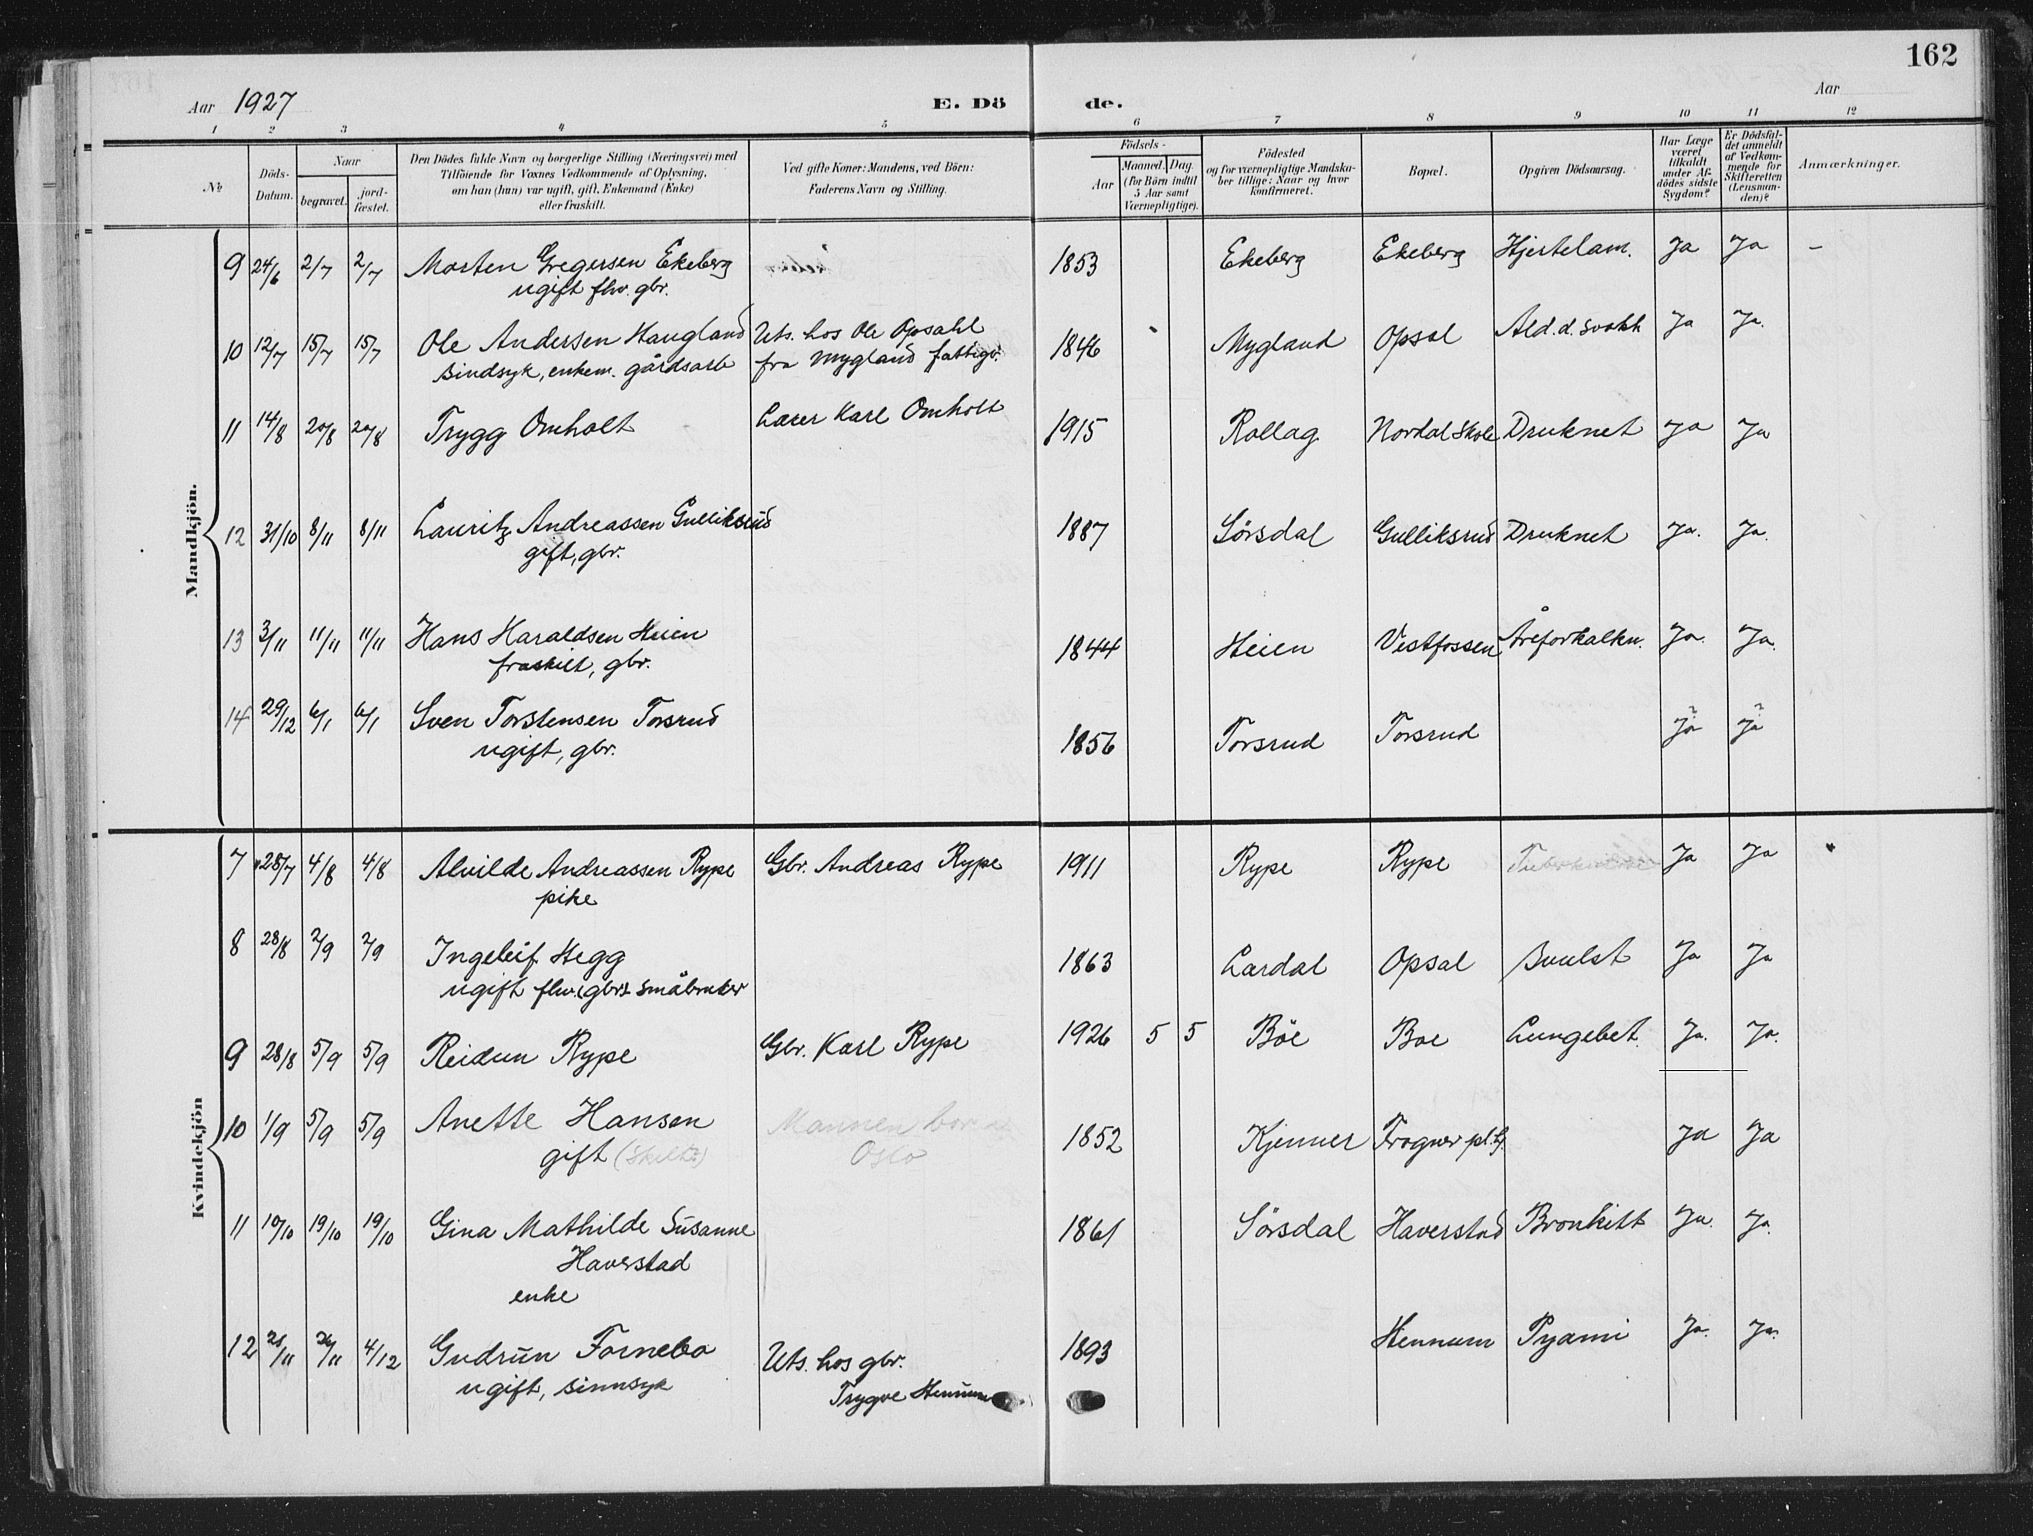 162
Aar 1927 E. Dö de. Aar
1 2 3 4 5 6 7 8 9 10 11 12
№
Döds-Datum.
Naar
begravet.
jord-fæstet.
Den Dödes fulde Navn og borgerlige Stilling (Næringsvei) med
Tilföiende for Voxnes Vedkommende af Oplysning,
om han (hun) var ugift, gift, Enkemand (Enke)
eller fraskilt.
Ved gifte Koner: Mandens, ved Börn:
Faderens Navn og Stilling.
Födsels-
Aar
Maaned. Dag.
(for Börn indtil
5 Aar samt
Værnepligtige).
Födested
og for værnepligtige Mandska-
ber tillige: Naar og hvor
konfirmeret.
Bopæl.
Opgiven Dödsaarsag.
Har Læge
været
tilkaldt
under Af-
dödes sidste
Sygdom?
Er Dödsfal-
det anmeldt
af Vedkom-
mende for
Skifteretten
(Lensman-
den)?
Anmærkninger.
Mandkjön.
9 24/6 2/7 2/7 Morten Gregersen Ekeberg 1853 Ekeberg Ekeberg Hjertelam. Ja Ja –
ugift fhv. gbr.
10 12/7 15/7 15/7 Ole Andersen Haugland Uts. hos Ole Opsahl 1846 Mygland Opsal Ald.d. svakh Ja Ja.
sindsyk, enkem. gårdsarb fra Mygland fattigv.
11 14/8 20/8 20/8 Trygg Omholt Lærer Karl Omholt 1915 Rollag Nordal skole Druknet Ja Ja
12 31/10 8/11 8/11 Lauritz Andreassen Gulliksrud 1887 Sørsdal Gulliksrud Druknet Ja. Ja.
gift, gbr.
13 3/11 11/11 11/11 Hans Haraldsen Heien 1844 Heien Vestfossen Åreforkalkn. Ja. Ja.
fraskilt, gbr.
14 29/12 6/1 6/1 Sven Torstensen Torsrud 1856 Torsrud Torsrud Ja Ja
ugift, gbr.
Kvindekjön
7 28/7 4/8 4/8 Alvilde Andreassen Rype Gbr. Andreas Rype 1911 Rype Rype Tuberkulose Ja Ja
pike
8 28/8 2/9 2/9 Ingeleif Hegg 1863 Lardal Opsal Svulst Ja Ja
ugift fhv. (gbr) småbruker
9 28/8 5/9 5/9 Reidun Rype Gbr. Karl Rype 1926 5 5 Böe Boe Lungebet. Ja. Ja.
10 1/9 5/9 5/9 Anette Hansen Mannen bor 1852 Kjenner Frogner pl. Ja Ja
gift (skilt?) Oslo
11 10/10 19/10 19/10 Gina Mathilde Susanne 1861 Sørsdal Haverstad Bronkitt Ja. Ja.
Haverstad
enke
12 21/11 26/11 4/12 Gudrun Fornebo Uts. hos gbr. 1893 Hennum Pyämi Ja. Ja.
ugift, sinnsyk Trygve Hennum